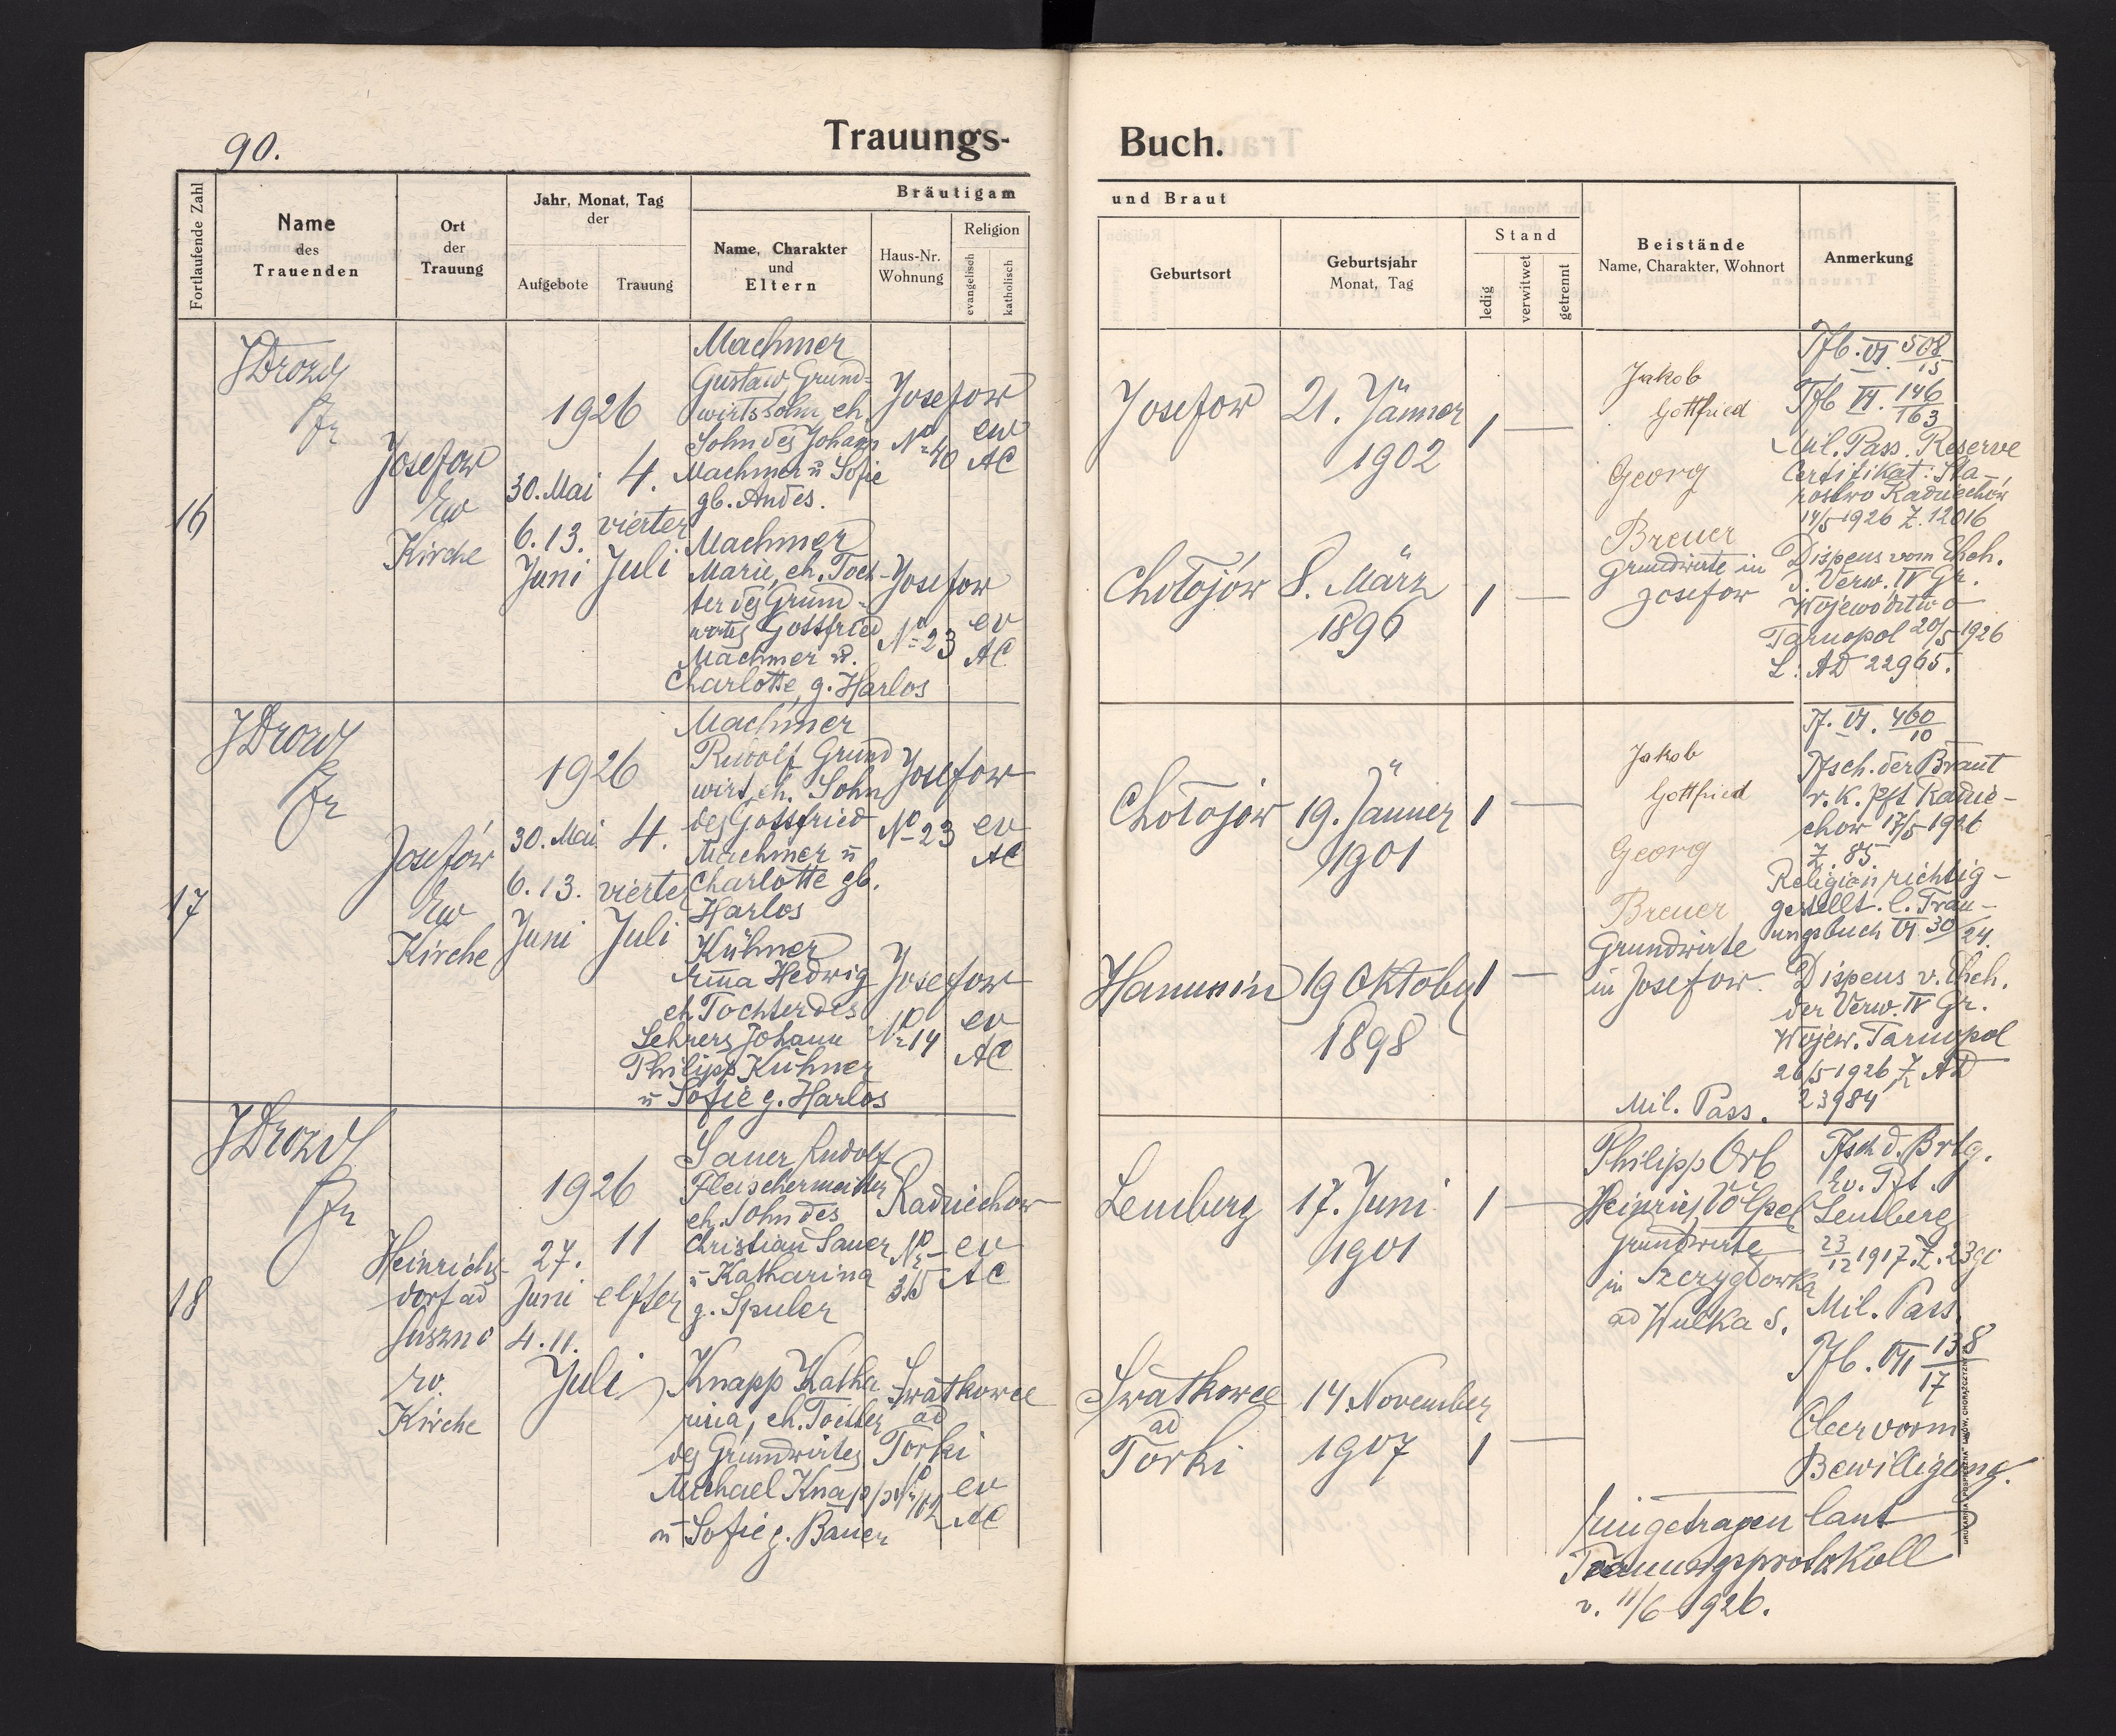 90.
Trauungs-
Buch.
Fortlaufende Zahl
Name
des
Trauenden
Ort
der
Trauung
Jahr, Monat, Tag
der
Aufgebote
Trauung
Bräutigam
Name, Charakter
und
Eltern
Haus-Nr.
Wohnung
Religion
evangelisch
katholisch
und Braut
Geburtsort
Geburtsjahr
Monat, Tag
Stand
ledig
verwitwet
getrennt
Beistände
Name, Charakter, Wohnort
Anmerkung
16
JDrozd
Pfr
Josefow
Ev
Kirche
1926
30. Mai
6. 13.
Juni
4.
vierter
Juli
Machmer
Gustaw, Grund-
wirtssohn, eh.
Sohn des Johann
Machmer u Sofie
gb. Andes.
Josefow
No 40
ev
AC
Machmer
Marie, eh. Toch-
ter des Grund-
wirtes Gottfried
Machmer u.
Charlotte, g. Harlos
Josefow
No 23
ev
AC
Josefow
21. Jänner
1902
1
Chołojów
8. März
1896
1
Jakob
Gottfried
Georg
Breuer
Grundwirte in
Josefow
Tfb. VI. 508/15
Tfb VI. 146/163
Mil. Pass. Reserve
Certifikat: Sta-
rostwo Radziechów
14/5 1926 Z. 12016
Dispens vom Eheh.
d. Verw. IV Gr.
Wojewodztwo
Tarnopol 20/5 1926
L: AD 22965.
17
JDrozd
Pfr
Josefów
Ev
Kirche
1926
30. Mai
6. 13.
Juni
4.
vierter
Juli
Machmer
Rudolf, Grund
wirt, eh. Sohn
des Gottfried
Machmer u
Charlotte gb.
Harlos
Josefow
No 23
ev
AC
Kühner
Emma Hedwig
eh Tochter des
Lehrers Johann
Philipp Kühner
u Sofie g. Harlos
Josefow
No 14
ev
AC
Chołojów
19. Jänner
1901
1
Hanunin
19 Oktober
1898
1
Jakob
Gottfried
Georg
Breuer
Grundwirte
in Josefow.
Mil. Pass.
Tf. VI. 460/10
Tfsch. der Braut
r. k. Pft Radzie-
chow 17/5 1926
Z. 85.
Religion richtig-
gestellt. l. Trau-
ungsbuch VI 30/24.
Dispens v. Eheh.
der Verw. IV Gr.
Wojew. Tarnopol
26/5 1926 Z AD
23984
18
JDrozd
Pfr
Heinrichs-
dorf ad
Suszno
ev.
Kirche
1926
27.
Juni
4. 11.
Juli
11
elfter
Sauer Rudolf
Fleischermeister
eh. Sohn des
Christian Sauer
u Katharina
g. Spuler
Radziechow
No
315
ev
AC
Knapp Katha
rina, eh. Tochter
des Grundwirtes
Michael Knapp
u Sofie g. Bauer
ad
Torki
ev
AC
Lemberg
17. Juni
1901
1
ad
Torki
14. November
1907
1
Philipp Orb
Heinrich Völpel
Grundwirte
in
ad Wulka S.
Tfsch d. Brtg.
Ev. Pft.
Lemberg
23/12 1917. Z. 2390
Mil. Pass
Tfb. VII 138/17
Obervorm
Bewilligung.
Eingetragen laut
Trauungsprotokoll
v. 11/6 1926.